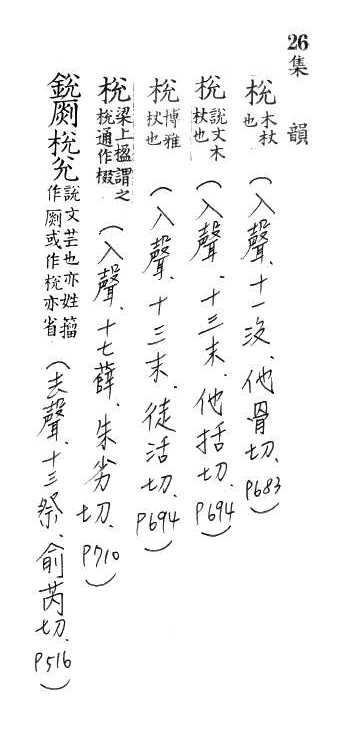 26
集韻
梲木杖也(入聲、十一沒、他骨切、P683)
梲說文木杖也(入聲、十三末、他括切、P694)
梲博雅杖也(入聲、十三末、徒活切、P694)
梲梁上楹謂之梲通作棳(入聲、十七薛、朱劣切、P710)
銳㓹梲兊說文芒也亦姓籀作㓹或作梲亦省(去聲、十三祭、俞芮切、P516)